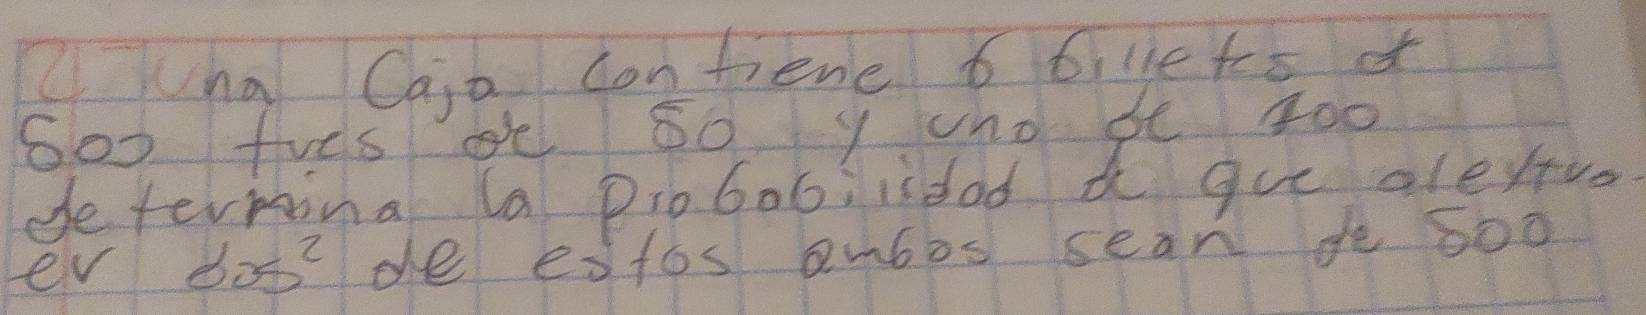 2- Una Caja contiene 6 billetes de
500 tres de 50 y uno de 100
determina la probabilidad de que al extra-
er dos 2 de estos ambos sean de 500